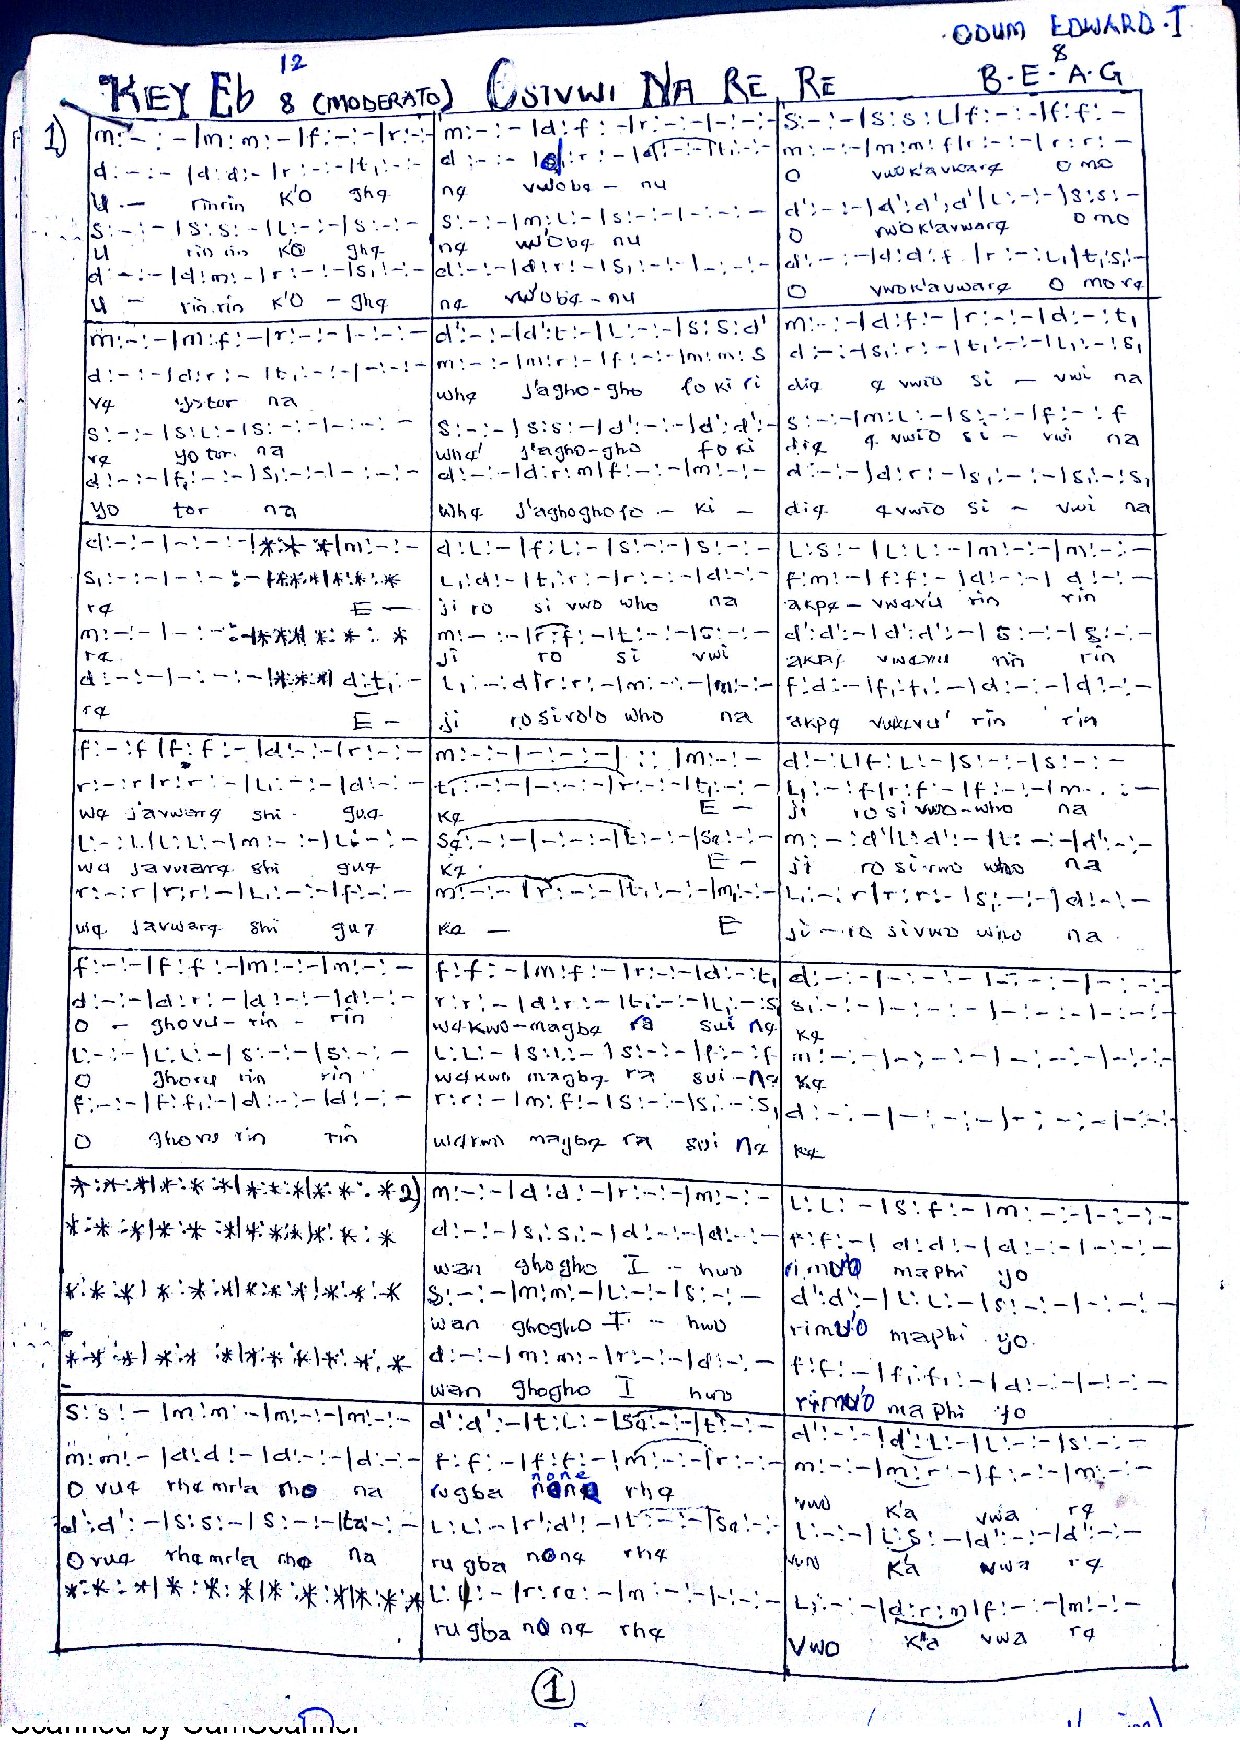 ODUM EDWARD.I
KEY Eb 12 8 (MODERATO) OSIVWI NA RE RE B.E.A.G 8
1)
m:-:-|m:m:-|f:-:-|r:-:-
d:-:-|d:d:-|r:-:-|t,:-:-
U - rinrin K'O ghę
S:-:-|S:S:-|L:-:-|S:-:-
U rin rin KO ghę
d:-:-|d:m:-|r:-:-|s,:-:-
U - rin.rin K'O - ghę
m:-:-|d:f:-|r:-:-|-:-:-
d:-:-|d:r:-|d:-:-|t,:-:-
nę vwobę - nu
S:-:-|m:L:-|s:-:-|-:-:-
nę vwobę nu
d:-:-|d:r:-|S,:-:-|-:-:-
nę vwobę - nu
S:-:-|S:S:L|f:-:-|f:f:-
m:-:-|m:m:f|r:-:-|r:r:-
O vwoK'avwarę O mo
d':-:-|d':d':d'|L:-:-|S:S:-
O vwoK'avwarę O mo
d:-:-|d:d:f|r:-:L,|t,:S,:-
O vwoK'avwarę O mo rę
m:-:-|m:f:-|r:-:-|-:-:-
d:-:-|d:r:-|t,:-:-|-:-:-
rę yotor na
S:-:-|S:L:-|S:-:-|-:-:-
rę yo tor na
d:-:-|f,:-:-|S,:-:-|-:-:-
yo tor na
d':-:-|d':t:-|L:-:-|S:S:d'
m:-:-|m:r:-|f:-:-|m:m:S
whę J'agho-gho fo ki ri
S:-:-|S:S:-|d':-:-|d':d':-
whę J'agho-gho fo ki
d:-:-|d:r:m|f:-:-|m:-:-
whę J'aghogho fo - ki -
m:-:-|d:f:-|r:-:-|d:-:t,
d:-:-|s,:r:-|t,:-:-|L,:-:S,
dię ę vwio si - vwi na
S:-:-|m:L:-|S:-:-|f:-:f
dię ę vwio si - vwi na
d:-:-|d:r:-|s,:-:-|s,:-:s,
dię ęvwio si - vwi na
d:-:-|-:-:-|*:*:*|m:-:-
s,:-:-|-:-:-|*:*:*|*:*:*
rę E -
m:-:-|-:-:-|*:*:*|*:*:*
rę
d:-:-|-:-:-|*:*:*|d:t,:-
rę E -
d:L:-|f:L:-|S:-:-|S:-:-
L,:d:-|t,:r:-|r:-:-|d:-:-
ji ro si vwo who na
m:-:-|r:f:-|t:-:-|S:-:-
ji ro si vwi
L,:-:d|r:r:-|m:-:-|m:-:-
ji rosivo'o who na
L:S:-|L:L:-|m:-:-|m:-:-
f:m:-|f:f:-|d:-:-|d:-:-
akpę - vwęvu rin rin
d':d':-|d':d':-|S:-:-|S:-:-
akpę vwęvu rin rin
f:d:-|f,:t,:-|d:-:-|d:-:-
akpę vwęvu' rin rin
f:-:f|f:f:-|d:-:-|r:-:-
r:-:r|r:r:-|L,:-:-|d:-:-
wę javwarę shi guę
L:-:L|L:L:-|m:-:-|L:-:-
wę javwarę shi guę
r:-:r|r:r:-|L,:-:-|f:-:-
wę javwarę shi guę
m:-:-|-:-:-| : : |m:-:-
t,:-:-|-:-:-|r:-:-|t,:-:-
kę E -
Sę:-:-|-:-:-|t:-:-|Se:-:-
Kę E -
m:-:-|r:-:-|t,:-:-|m,:-:-
Kę - E
d:-:L|f:L:-|S:-:-|S:-:-
L,:-:f|r:f:-|f:-:-|m:-:-
ji ro si vwo-who na
m:-:d'|L:d':-|L:-:-|d':-:-
ji ro si-vwo who na
L,:-:r|r:r:-|s,:-:-|d:-:-
ji - ro sivwo who na.
f:-:-|f:f:-|m:-:-|m:-:-
d:-:-|d:r:-|d:-:-|d:-:-
O - ghovu - rin - rin
L:-:-|L:L:-|S:-:-|S:-:-
O ghovu rin rin
f:-:-|f:f,:-|d:-:-|d:-:-
O ghovu rin rin
f:f:-|m:f:-|r:-:-|d:-:t,
r:r:-|d:r:-|t,:-:-|L,:-:s,
wękwo-magbę ra sui nę
L:L:-|S:L:-|S:-:-|f:-:f
wękwo magbę ra sui-nę
r:r:-|m:f:-|S:-:-|S,:-:S,
wękwo magbę ra sui nę
d:-:-|-:-:-|-:-:-|-:-:-
s,:-:-|-:-:-|-:-:-|-:-:-
Kę
m:-:-|-:-:-|-:-:-|-:-:-
Kę
d:-:-|-:-:-|-:-:-|-:-:-
Kę
*:*:*|*:*:*|*:*:*|*:*:*
*:*:*|*:*:*|*:*:*|*:*:*
*:*:*|*:*:*|*:*:*|*:*:*
*:*:*|*:*:*|*:*:*|*:*:*
2)
m:-:-|d:d:-|r:-:-|m:-:-
d:-:-|s,:s,:-|d:-:-|d:-:-
wan ghogho I - hwo
S:-:-|m:m:-|L:-:-|S:-:-
wan ghogho I - hwo
d:-:-|m:m:-|r:-:-|d:-:-
wan ghogho I hwo
L:L:-|S:f:-|m:-:-|-:-:-
f:f:-|d:d:-|d:-:-|-:-:-
rimu'o maphi yo
d':d':-|L:L:-|S:-:-|-:-:-
rimu'o maphi yo.
f:f:-|f,:f,:-|d:-:-|-:-:-
rimu'o maphi yo
S:S:-|m:m:-|m:-:-|m:-:-
m:m:-|d:d:-|d:-:-|d:-:-
O vuę rhę mrla rho na
d':d':-|S:S:-|S:-:-|ta:-:-
O vuę rhę mrla rho na
*:*:*|*:*:*|*:*:*|*:*:*
d':d':-|t:L:-|Sę:-:-|t:-:-
f:f:-|f:f:-|m:-:-|r:-:-
none
rugba nonę rhę
L:L:-|r':d':-|t:-:-|Se:-:-
ru gba nonę rhę
L:L:-|r:re:-|m:-:-|-:-:-
ru gba nonę rhę
d':-:-|d':L:-|L:-:-|S:-:-
m:-:-|m:r:-|f:-:-|m:-:-
vwo K'a vwa rę
L:-:-|L:S:-|d':-:-|d':-:-
vwo K'a vwa rę
L,:-:-|d:r:m|f:-:-|m:-:-
vwo K'a vwa rę
1
Scanned by CamScanner